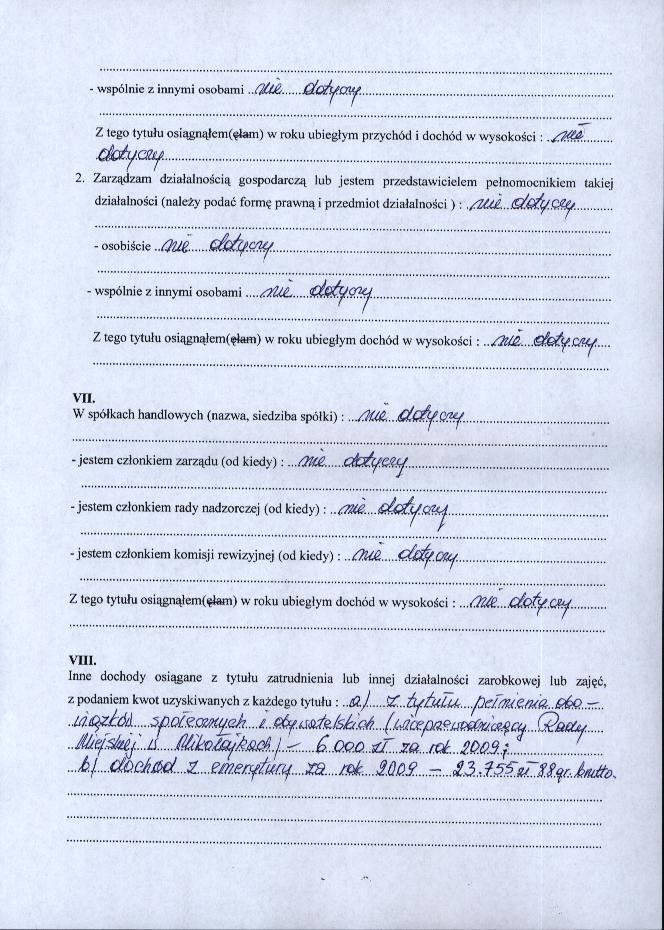 - wspólnie z innymi osobami ..nie dotyczy
Z tego tytułu osiągnąłem(ęłam) w roku ubiegłym przychód i dochód w wysokości : nie
dotyczy
2. Zarządzam działalnością gospodarczą lub jestem przedstawicielem pełnomocnikiem takiej
działalności (należy podać formę prawną i przedmiot działalności ) : nie dotyczy
- osobiście nie dotyczy
- wspólnie z innymi osobami nie dotyczy
Z tego tytułu osiągnąłem(ęłam) w roku ubiegłym dochód w wysokości : nie dotyczy
VII.
W spółkach handlowych (nazwa, siedziba spółki) : nie dotyczy
- jestem członkiem zarządu (od kiedy) : nie dotyczy
- jestem członkiem rady nadzorczej (od kiedy) : nie dotyczy
- jestem członkiem komisji rewizyjnej (od kiedy) : nie dotyczy
Z tego tytułu osiągnąłem(ęłam) w roku ubiegłym dochód w wysokości : nie dotyczy
VIII.
Inne dochody osiągane z tytułu zatrudnienia lub innej działalności zarobkowej lub zajęć,
z podaniem kwot uzyskiwanych z każdego tytułu : a/ z tytułu pełnienia obo-
wiązków społecznych i obywatelskich (wiceprzewodniczący Rady
Miejskiej w Mikołajkach) - 6.000 zł za rok 2009;
b/ dochód z emerytury za rok 2009 - 23.755 zł 88 gr. brutto.